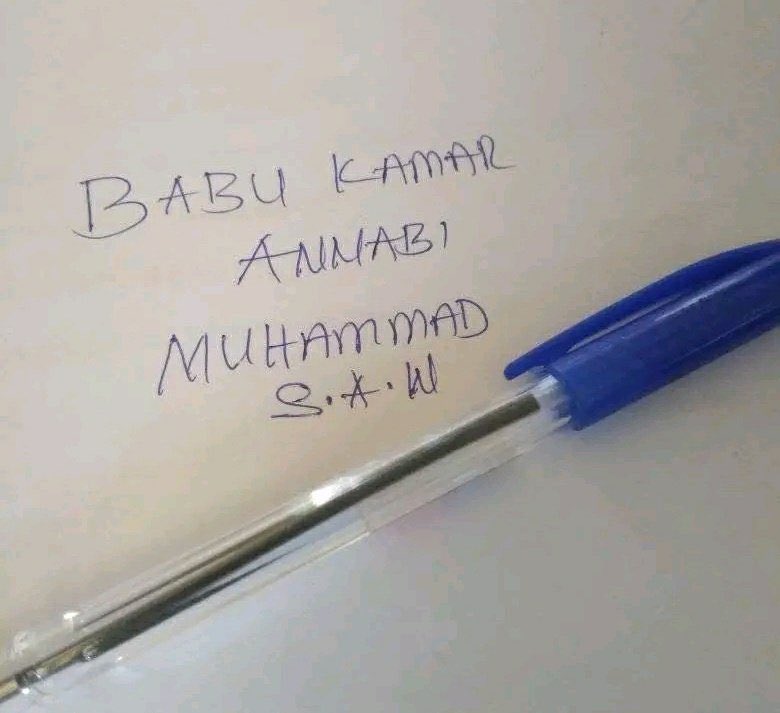 BABU KAMAR
ANNABI
MUHAMMAD
S.A.W